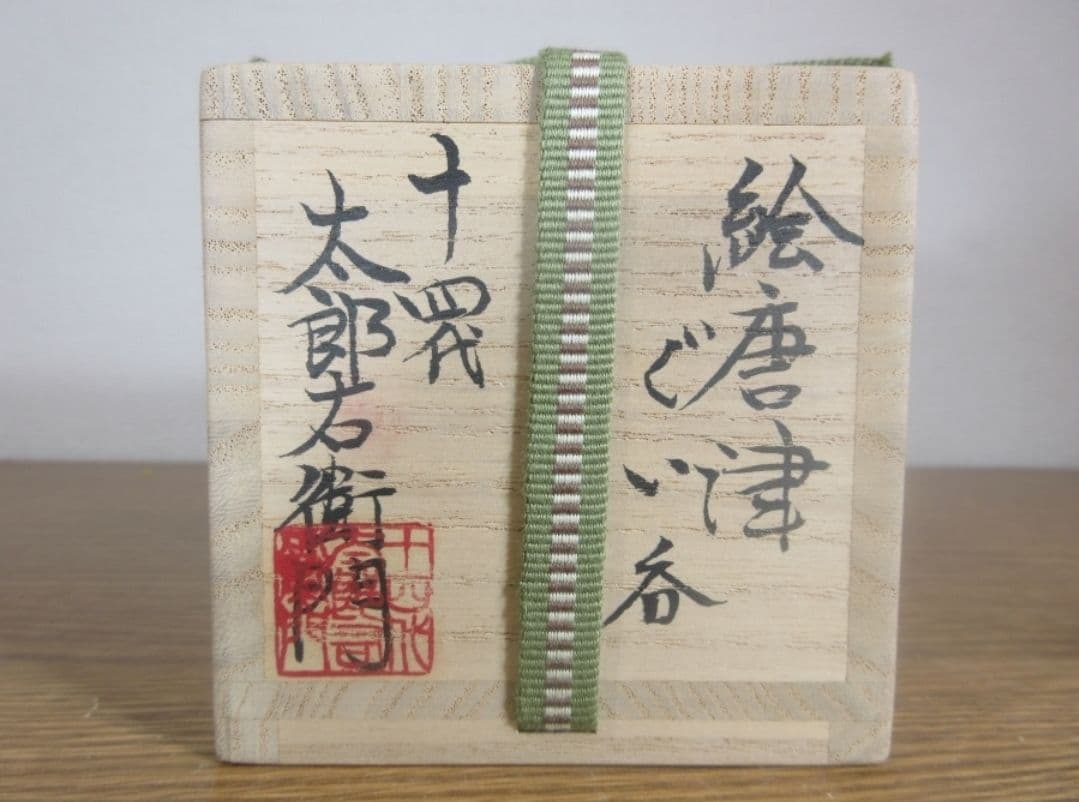 絵唐津
ぐい呑
十四代
太郎右衛門